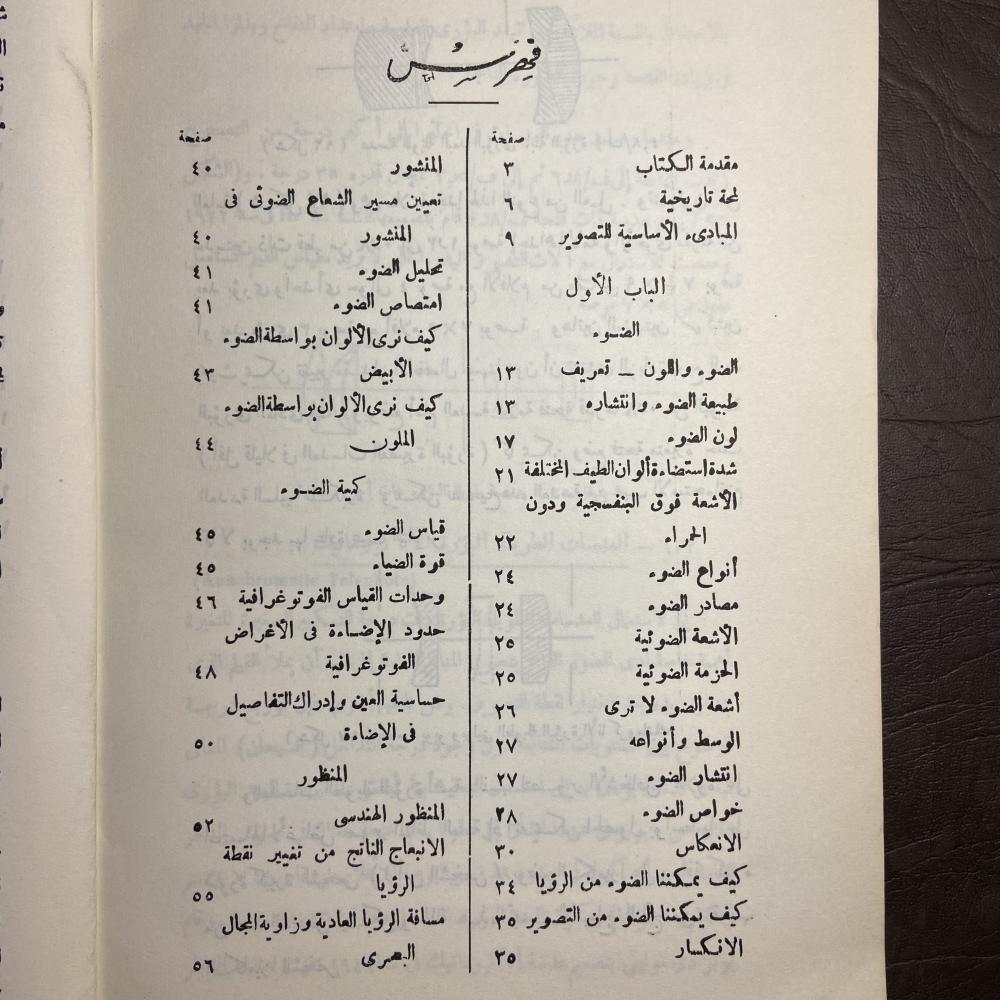 فهرس
صفحة
مقدمة الكتاب ٣
لمحة تاريخية ٦
المبادىء الأساسية للتصوير ٩
الباب الأول
الضوء
الضوء واللون – تعريف ١٣
طبيعة الضوء وانتشاره ١٣
لون الضوء ١٧
شدة استضاءة ألوان الطيف المختلفة ٢١
الأشعة فوق البنفسجية ودون
الحمراء ٢٢
أنواع الضوء ٢٤
مصادر الضوء ٢٤
الأشعة الضوئية ٢٥
الحزمة الضوئية ٢٥
أشعة الضوء لا ترى ٢٦
الوسط وأنواعه ٢٧
انتشار الضوء ٢٧
خواص الضوء ٢٨
الانعكاس ٣٠
كيف يمكننا الضوء من الرؤيا ٣٤
كيف يمكننا الضوء من التصوير ٣٥
الانكسار ٣٥
صفحة
المنشور ٤٠
تعيين مسير الشعاع الضوئى فى
المنشور ٤٠
تحليل الضوء ٤١
امتصاص الضوء ٤١
كيف نرى الألوان بواسطة الضوء
الأبيض ٤٣
كيف نرى الألوان بواسطة الضوء
الملون ٤٤
كمية الضوء
قياس الضوء ٤٥
قوة الضياء ٤٥
وحدات القياس الفوتوغرافية ٤٦
حدود الإضاءة فى الأغراض
الفوتوغرافية ٤٨
حساسية العين وإدراك التفاصيل
فى الإضاءة ٥٠
المنظور
المنظور الهندسى ٥٢
الانبعاج الناتج من تغيير نقطة
الرؤيا ٥٥
مسافة الرؤيا العادية وزاوية المجال
البصرى ٥٦